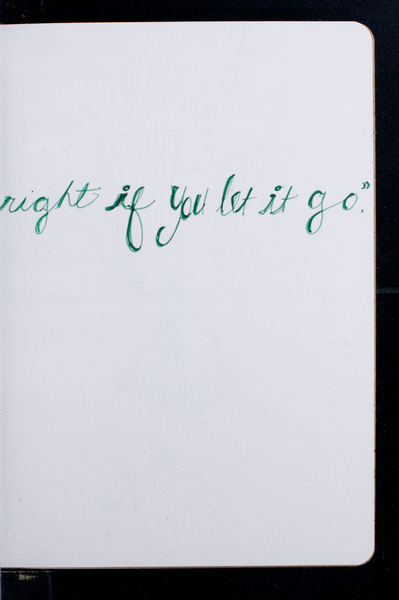 right if you let it go."